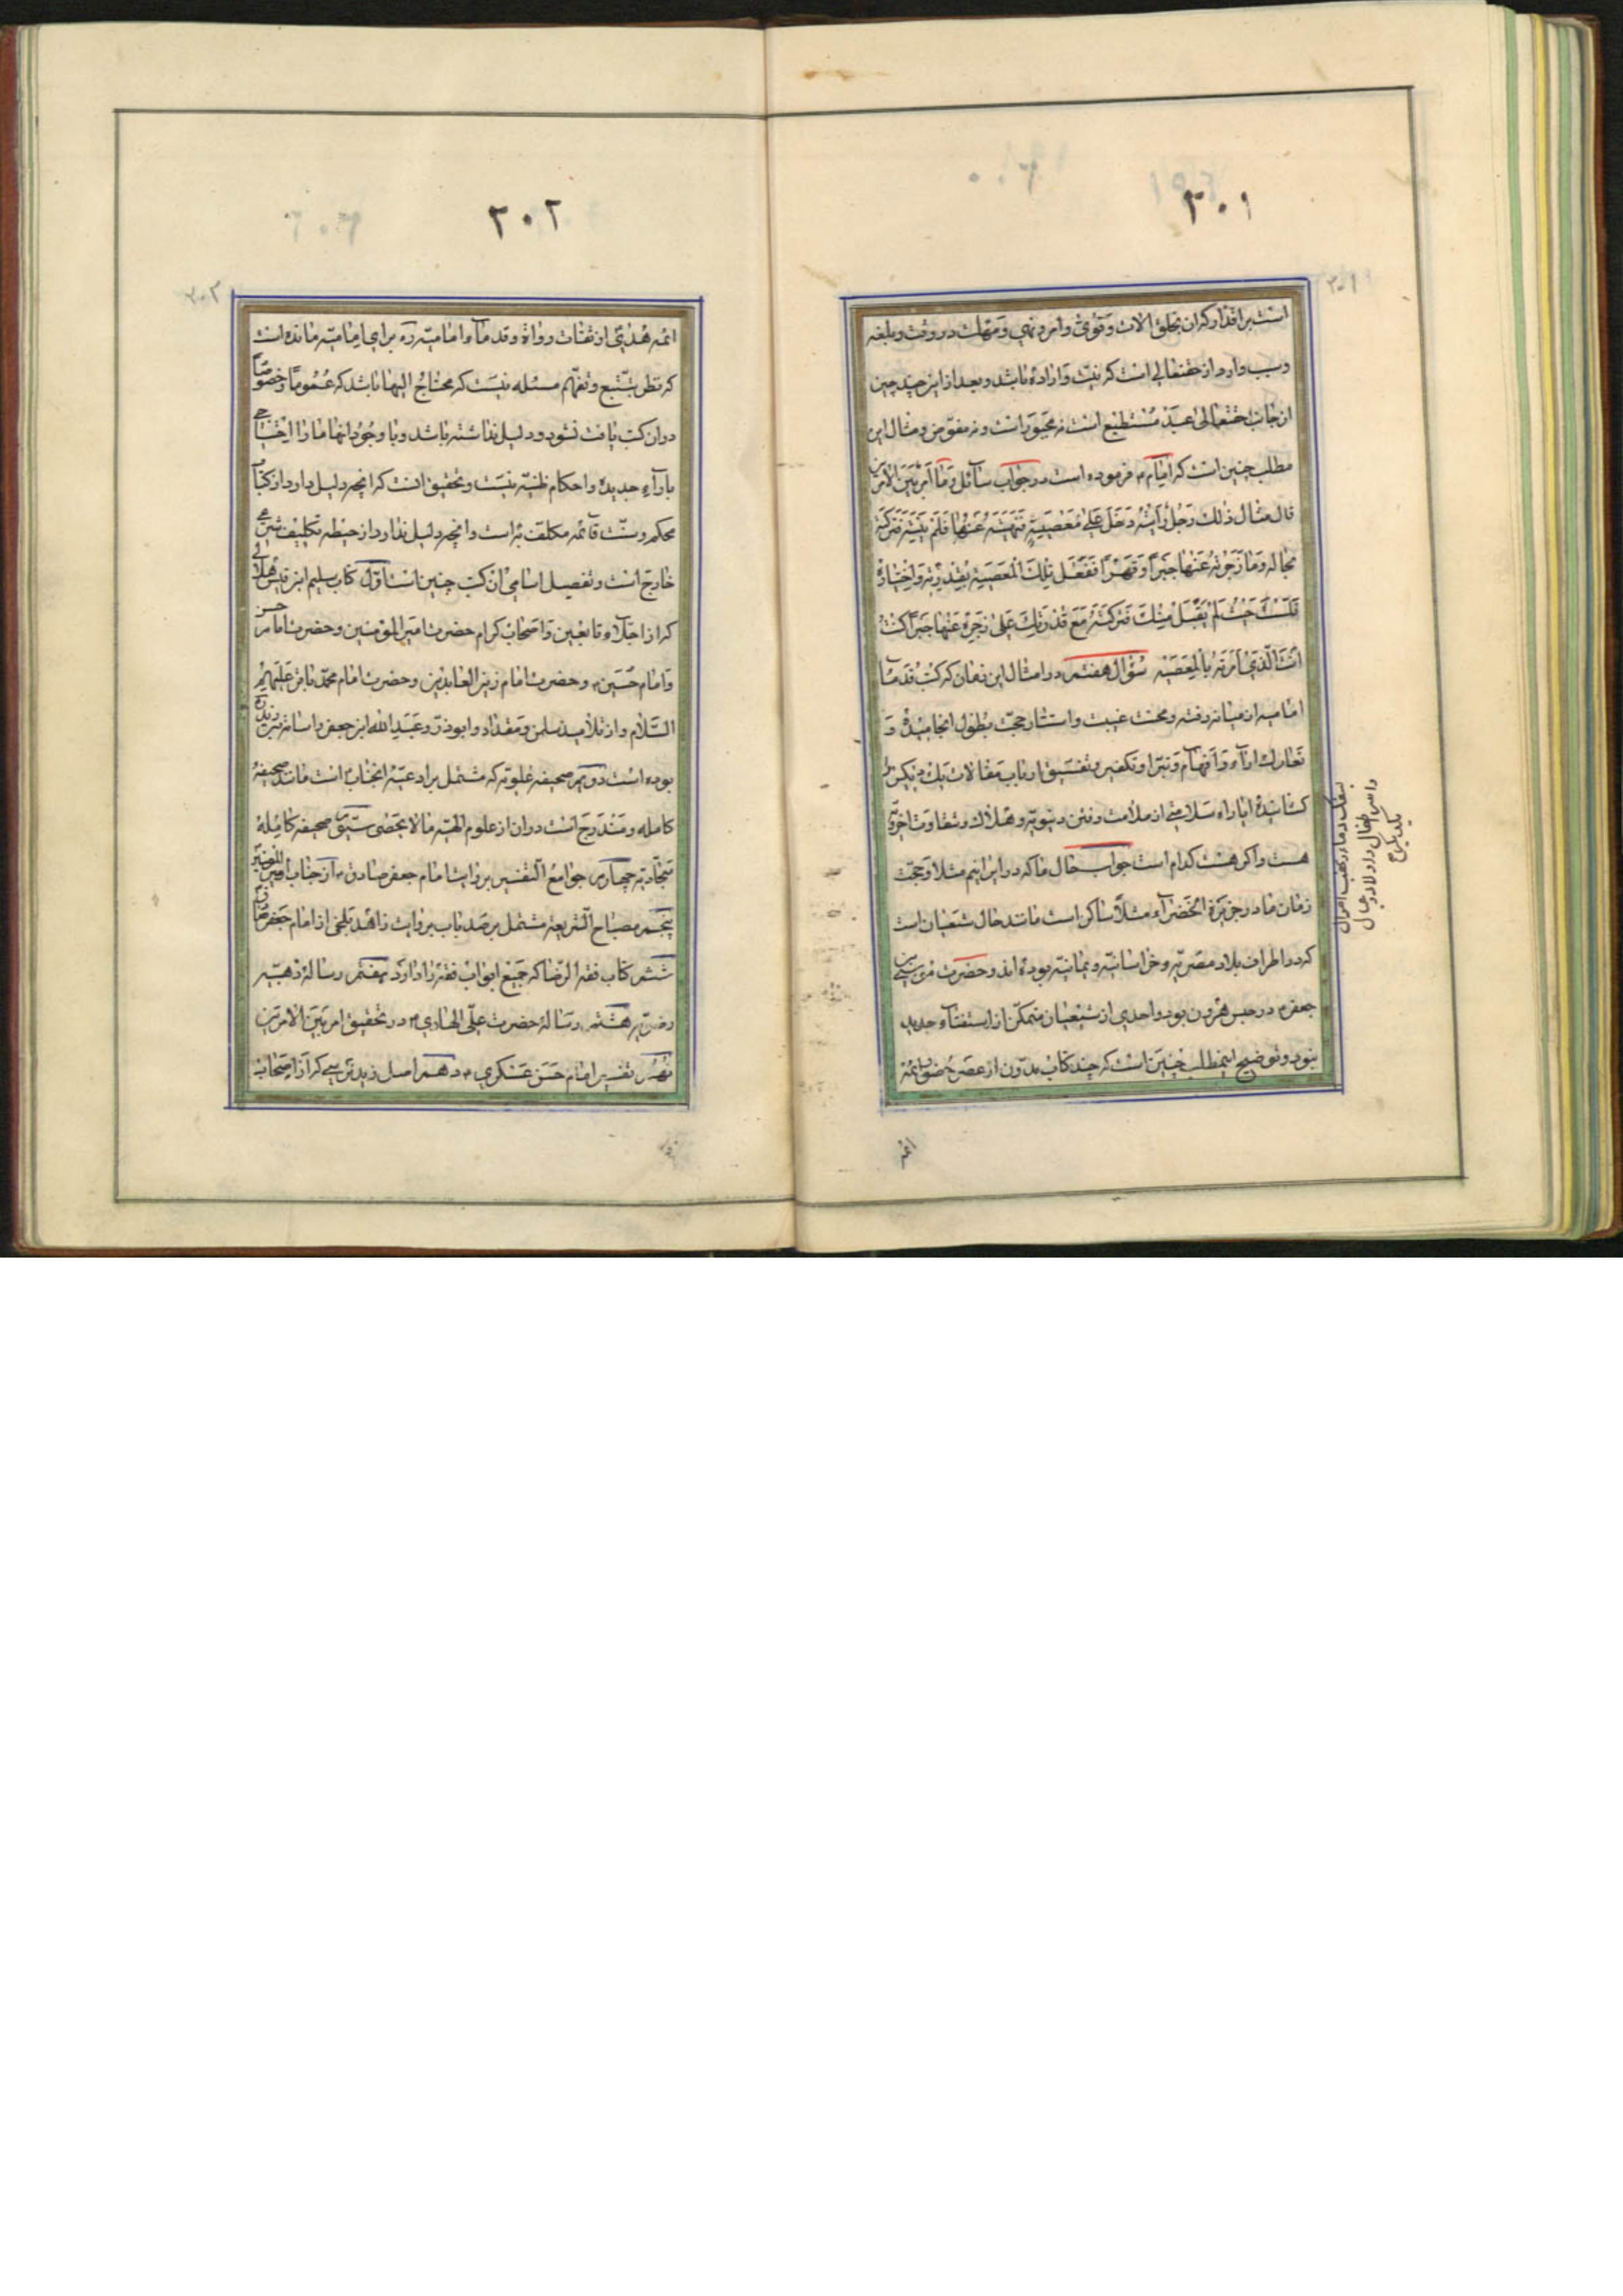 ۳۰۱
است بر اقدار کران بخلق الات و قوی و امر و نهی و مهلت در وقت و بلغه
و سبب وارد از حقتعالی است که نیت و اراده باشد و بعد از این چند چیز
از جانب حقتعالی عبد مستطیع است نه مجبور است و نه مفوض و مثال این
مطلب چنین است که امام م فرموده است در جواب سائل و ما امر بین الامرین
قال مثال ذلک رجل رایته دخل علی معصیة فنهیته عنها فلم ینته فترکته
بحاله و ما زجرته عنها جبراً و قهراً ففعل تلک المعصیة بقدرته و اختیاره
فلست حیث لم یقبل منک فترکته مع قدرتک علی زجره عنها جبراً کنت
انت الذی امرته بالمعصیه سؤال هفتم در امثال این زمان که کتب قدماء
امامیه از میانه رفته و محنت غیبت و استتار حجت بطول انجامیده و
تعارک اراء و افهام و تبرا و تکفیر و تفسیق ارباب مقالات یک دیگر
کشانیده ایا راه سلامتی از ملامت و فتن دنیویه و هلاک و شقاوت اخرویه
هست و اگر هست کدام است جواب حال ما که در این ایم مثلا و حجت
زمان ما در جزیرة الخضراء مثلاً ساکن است مانند حال شیعیان است
که در اطراف بلاد مصریه و خراسانیه و یمانیه بوده اند و حضرت موسی بن
جعفر م در حبس هرون بود واحدی از شیعیان متمکن از استفتاء جدید
نبود و توضیح اینمطلب چنین است که چند کتاب مدون از عصر حضور ائمه
ائمه
۳۰۲
ائمه هدی از ثقات رواة و قدماء امامیه ره برای امامیه مانده است
که نظر بتتبع و تفهم مسئله نیست که محتاج الیها باشد که عموماً و خصوصاً
در ان کتب یافت نشود و دلیل نداشته باشد و با وجود انها ما را احتیاجی
بآراء جدیده و احکام ظنیه نیست و تحقیق انست که انچه دلیل دارد از کتاب
محکم و سنت قائمه مکلف به است و انچه دلیل ندارد از حیطه تکلیف شرعی
خارج است و تفصیل اسامی ان کتب چنین است اول کتاب سلیم ابن قیس هلالی
که از اجلاء تابعین و اصحاب کرام حضرت امیر المؤمنین و حضرت امام حسن
و امام حسین م و حضرت امام زین العابدین و حضرت امام محمد باقر علیهم
السلام و از تلامیذ سلمن و مقداد و ابوذر و عبد الله ابن جعفر
بوده است دویم صحیفه علویه که مشتمل بر ادعیه انجناب است مانند صحیفه
کامله و مندرج است در ان از علوم الهیه ما لا یحصی سیّوم صحیفه کامله
سجادیه چهارم جوامع التفسیر بروایت امام جعفر صادق م از جناب امیر المؤمنین
پنجم مصباح الشریعه مشتمل بر صد باب بروایت زاهد بلخی از امام جعفر صادق
ششم کتاب فقه الرضا که جمیع ابواب فقه را دارد هفتم رساله ذهبیه
رضویه هشتم رساله حضرت علی الهادی م در تحقیق امر بین الامرین
نهم تفسیر امام حسن عسکری م دهم اصل زید نرسی که از اصحاب